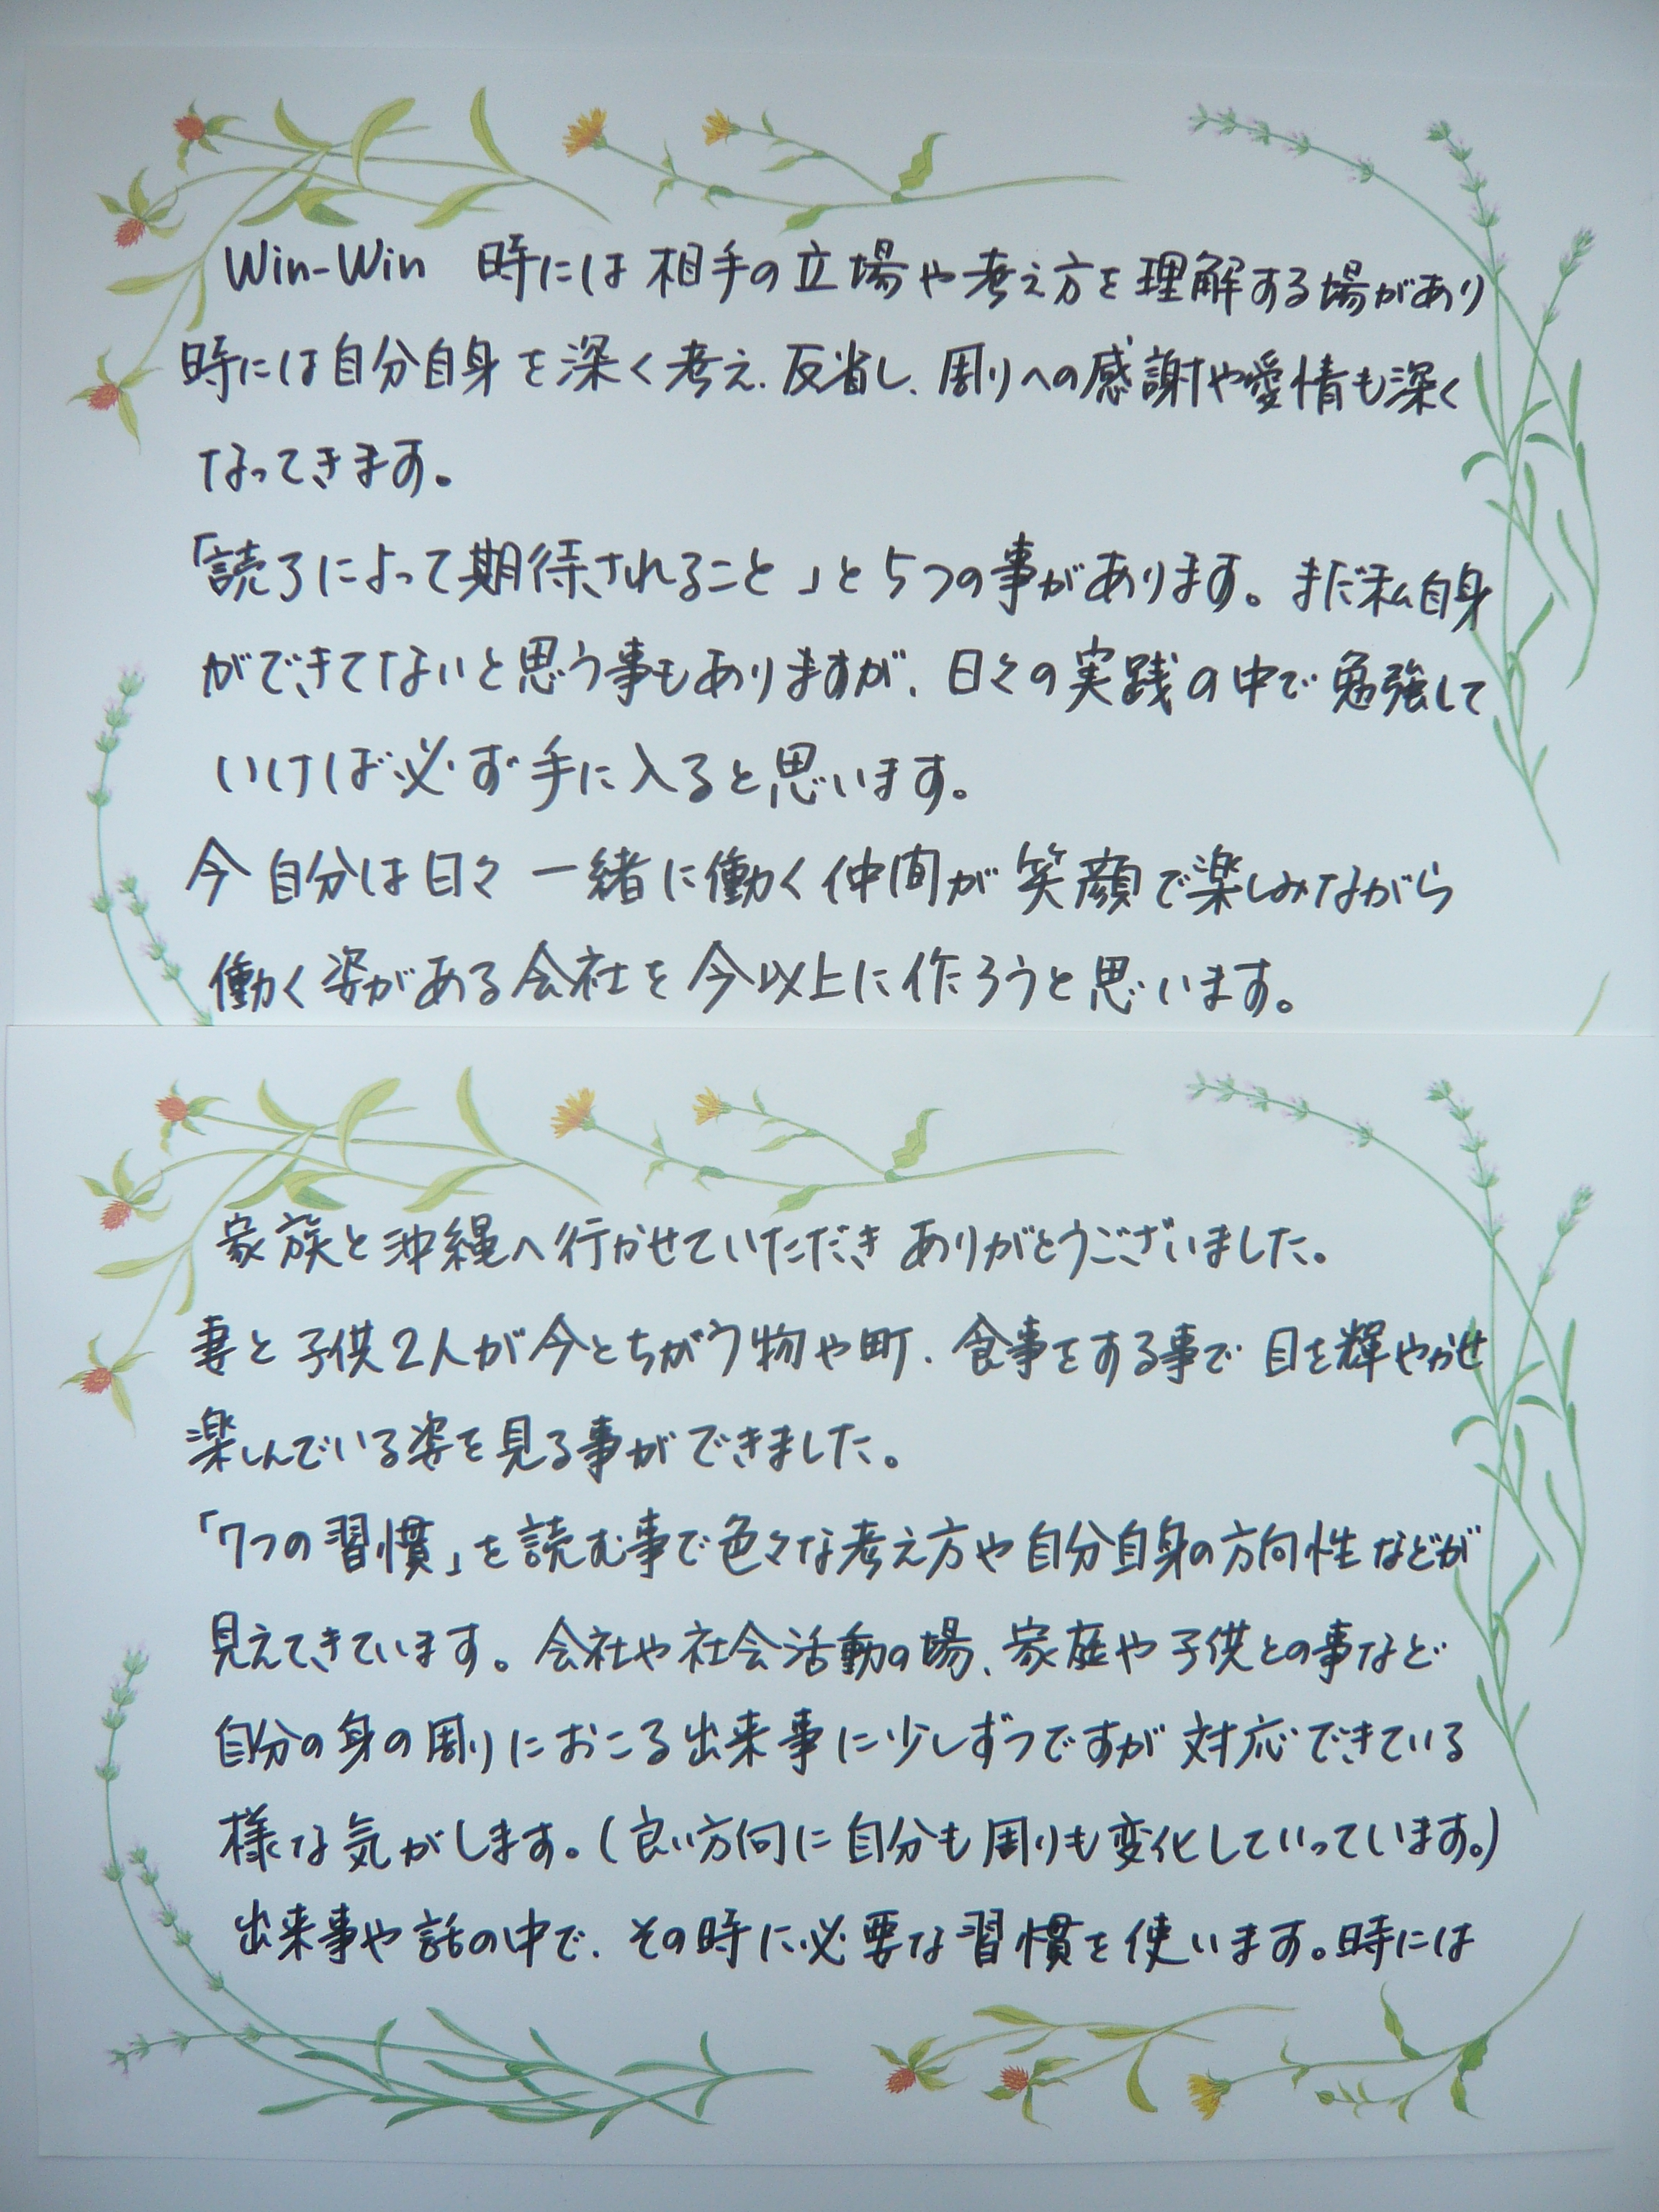 Win-Win 時には相手の立場や考え方を理解する場があり
時には自分自身を深く考え、反省し、周りへの感謝や愛情も深く
なってきます。
「読了によって期待されること」と5つの事があります。まだ私自身
ができてないと思う事もありますが、日々の実践の中で勉強して
いけば必ず手に入ると思います。
今自分は日々一緒に働く仲間が笑顔で楽しみながら
働く姿がある会社を今以上に作ろうと思います。
家族と沖縄へ行かせていただきありがとうございました。
妻と子供2人が今とちがう物や町、食事をする事で目を輝やかせ
楽しんでいる姿を見る事ができました。
「7つの習慣」を読む事で色々な考え方や自分自身の方向性などが
見えてきています。会社や社会活動の場、家庭や子供との事など
自分の身の周りにおこる出来事に少しずつですが対応できている
様な気がします。(良い方向に自分も周りも変化していっています。)
出来事や話の中で、その時に必要な習慣を使います。時には